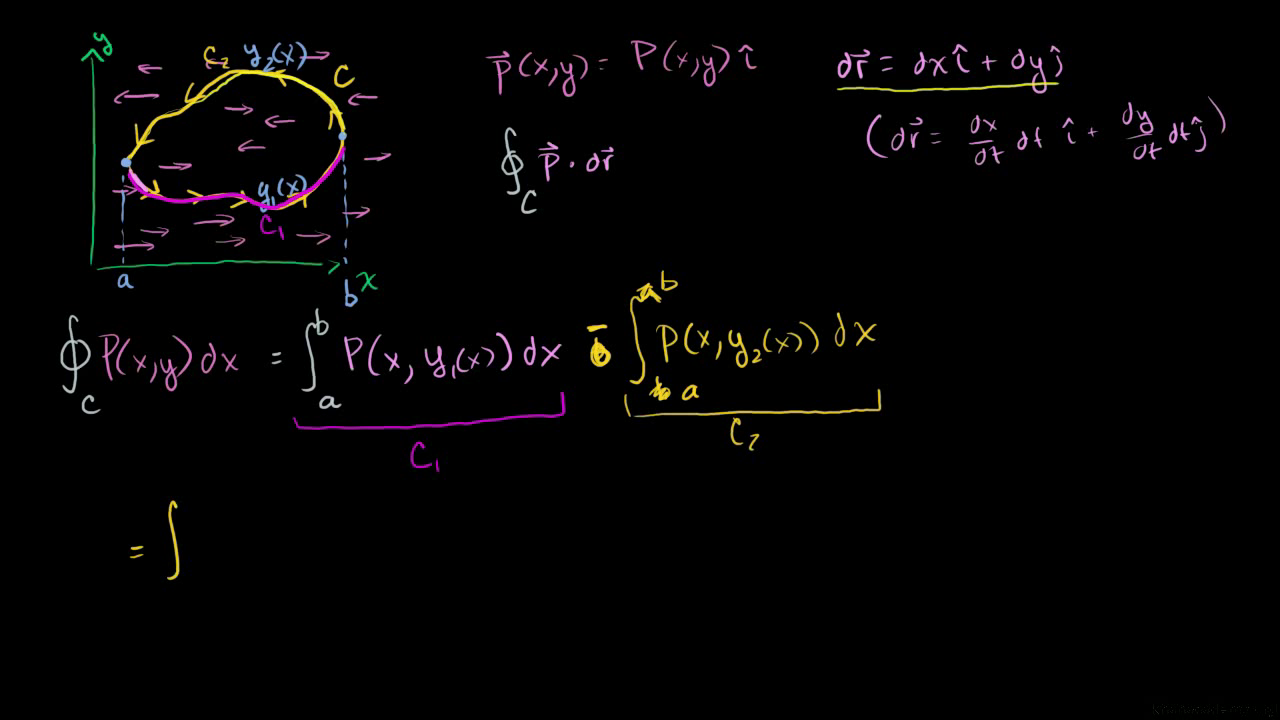 y
C₂ y₂(x)
C
y₁(x)
C₁
a
b
x
p⃗(x,y) = P(x,y) î
dr⃗ = dx î + dy ĵ
(dr⃗ = dx/dt dt î + dy/dt dt ĵ)
∮_C p⃗ · dr⃗
∮_C P(x,y) dx = ∫_a^b P(x, y₁(x)) dx − ∫_a^b P(x, y₂(x)) dx
C₁
C₂
= ∫